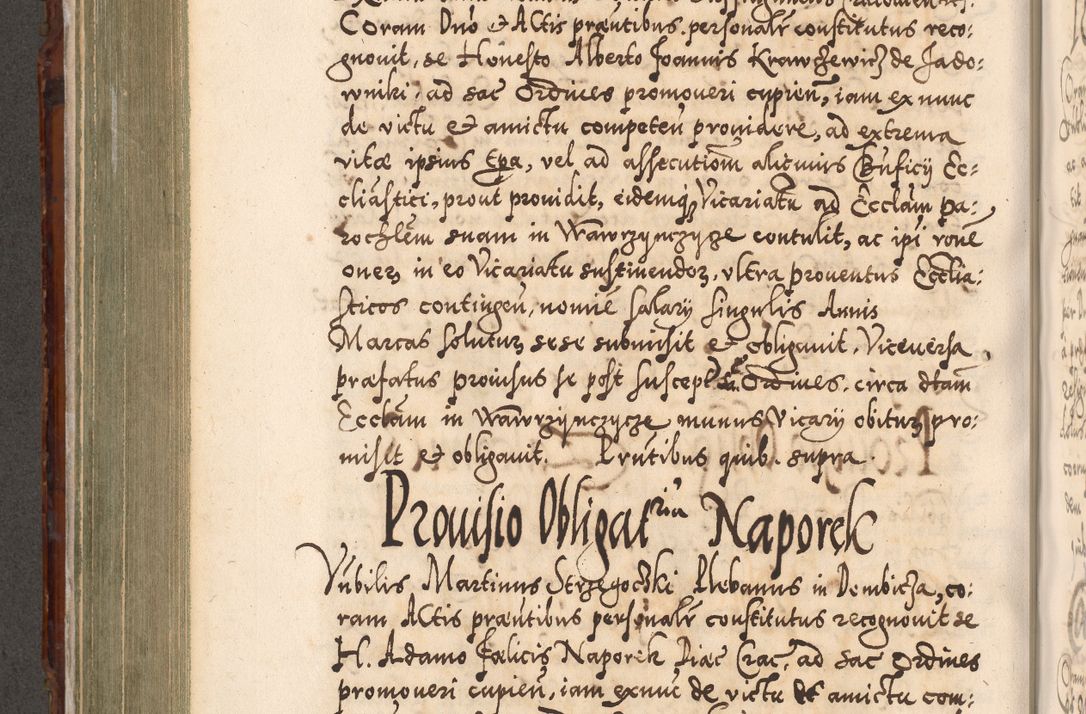 Coram Dno & Actis præntibus personalr constitutus reco:
gnouit, se Honesto Alberto Joannis Krawczewicz de Jado:
wniki, ad sac Ordines promoueri cupien, iam ex nunc
de victu & amictu competen prouidere, ad extrema
vitæ ipsius tpa, vel ad assecutiom alicuius Bnficij Ec:
cliastici, prout prouidit, eidemq Vicariatu ad Ecclam pa:
rochlem suam in Wawrzynczyce contulit, ac ipi rone
oner in eo Vicariatu sustinendor, vltra prouentus Ecclia:
sticos contingen, nomie salary singulis Annis
Marcas soluturum sese submisit & obligauit. Viceuersa
præfatus prouisus se post suscept Ordines, circa dtam
Ecclam in Wawrzynczycze munus Vicary obitur, pro:
misit & obligauit. Prntibus quib. supra.
Prouisio Obligat ria Naporek
Vnbilis Martinus Strzegoczki Plebanus in Dembicza, co:
ram Actis præntibus personalr constitutus recognouit se
H. Adamo Fœlicis Naporek Diæc Crac, ad sac Ordines
promoueri cupien, iam exnuc de victu & amictu com: